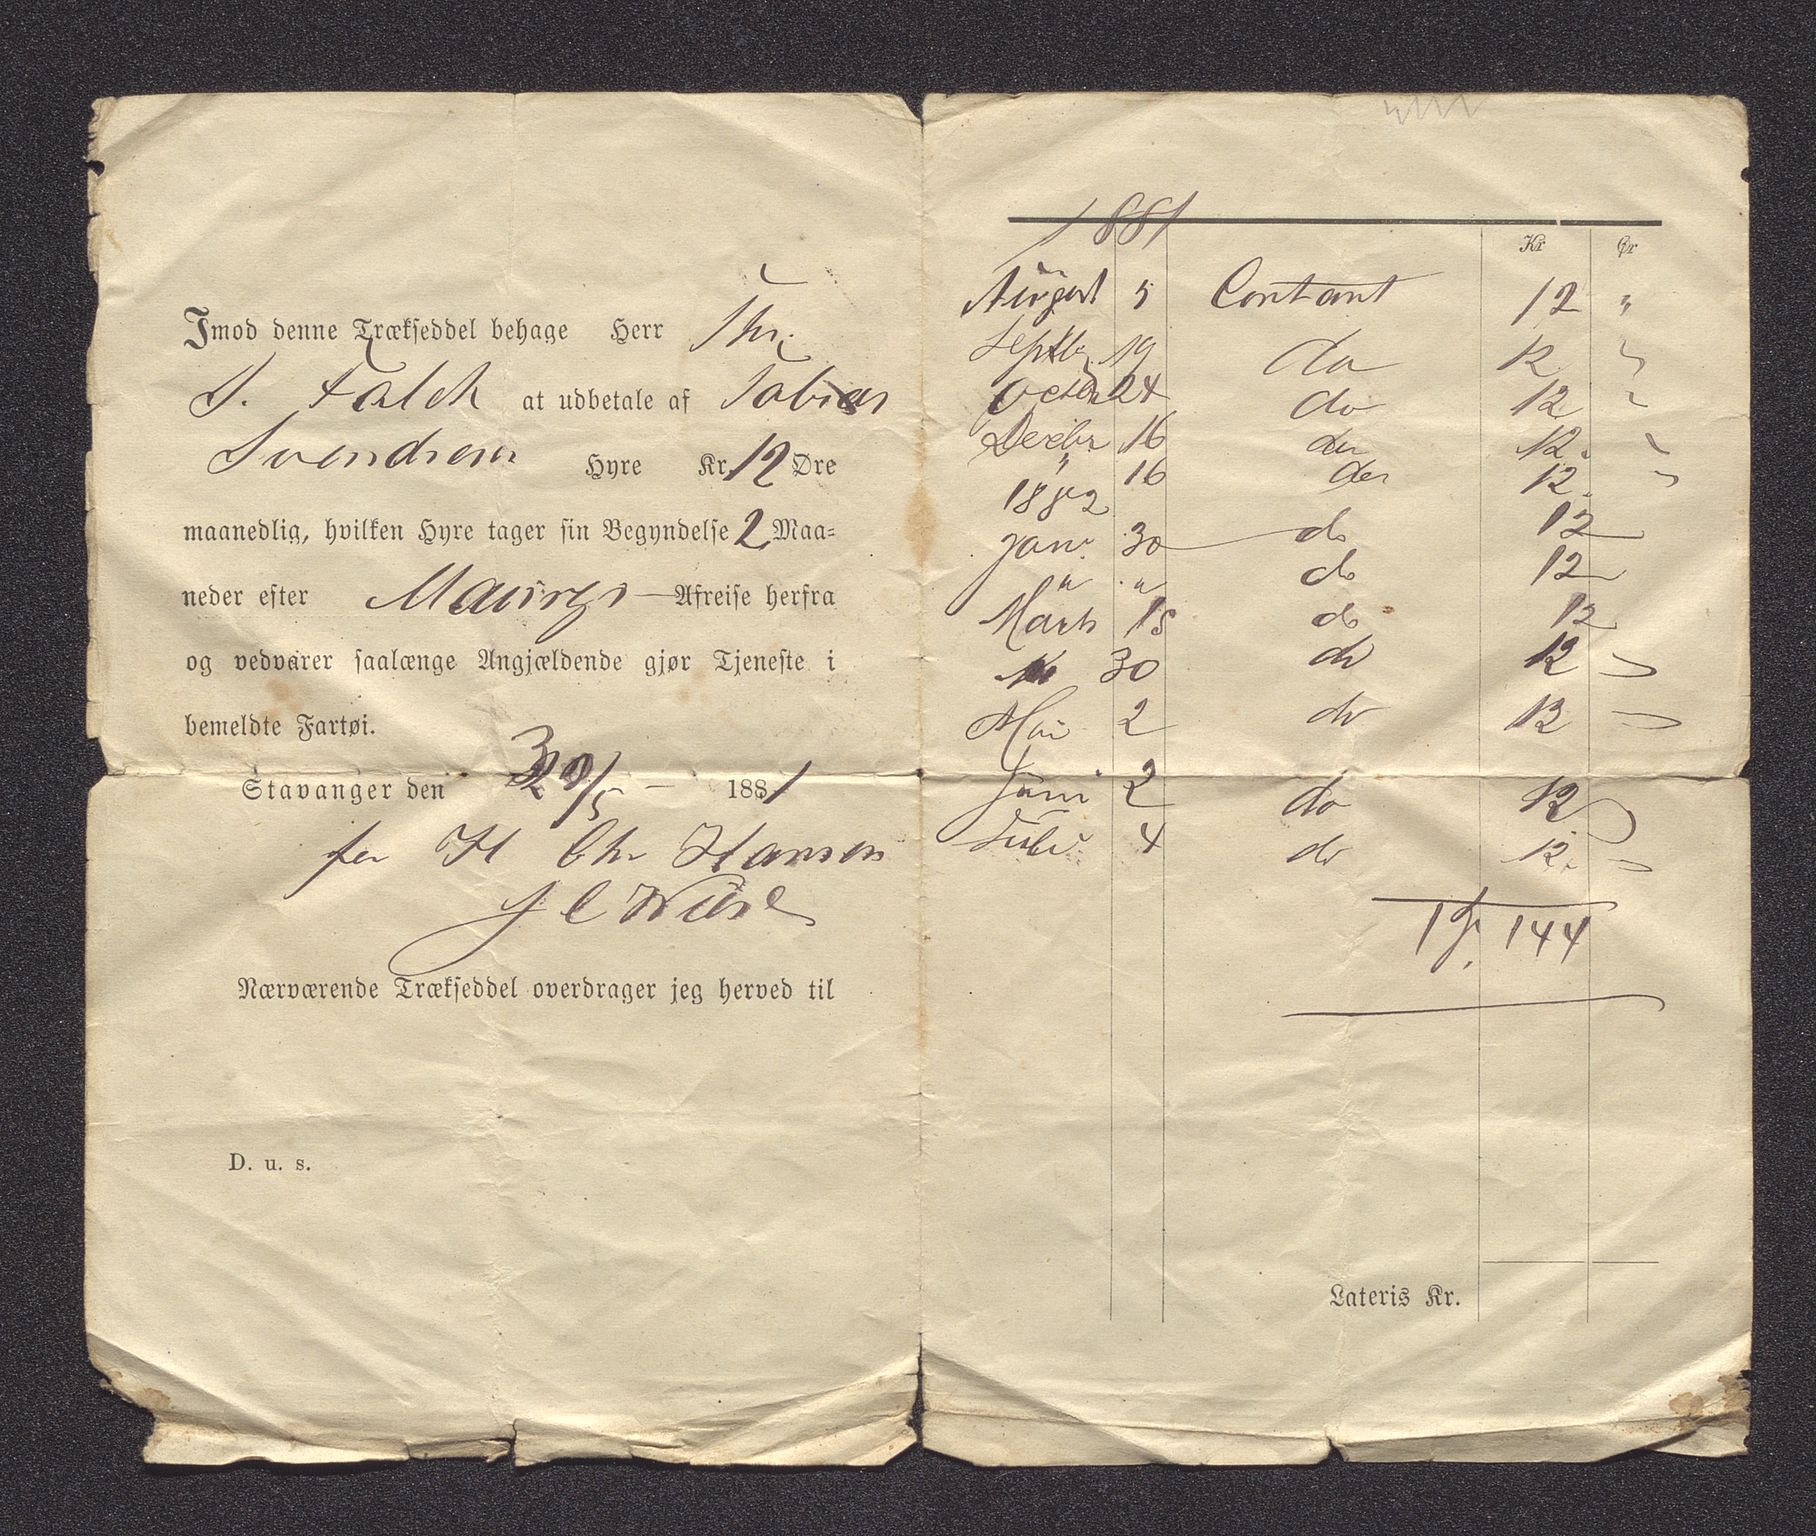 Imod denne Trækseddel behage Herr Thr.
S. Falck at udbetale af Tobias
Svendsen Hyre Kr. 12 Øre
maanedlig, hvilken Hyre tager sin Begyndelse 2 Maa=
neder efter Afreise herfra
og vedvarer saalænge Angjældende gjør Tjeneste i
bemeldte Fartøi.
Stavanger den /5 - 1881
for H Chr Hansen
J C
Nærværende Trækseddel overdrager jeg herved til
D. u. s.
1881
Kr Ør
August 5 Contant 12 "
Septbr. 19 do 12 "
Octbr 24 do 12 "
Decbr 16 do 12. "
" 16 do 12. "
1882
Janr. 30 do 12
" " do 12
Marts 15 do 12
30 do 12 "
Mai 2 do 12 "
Juni 2 do 12 "
Juli 4 do 12. "
144
Lateris Kr.